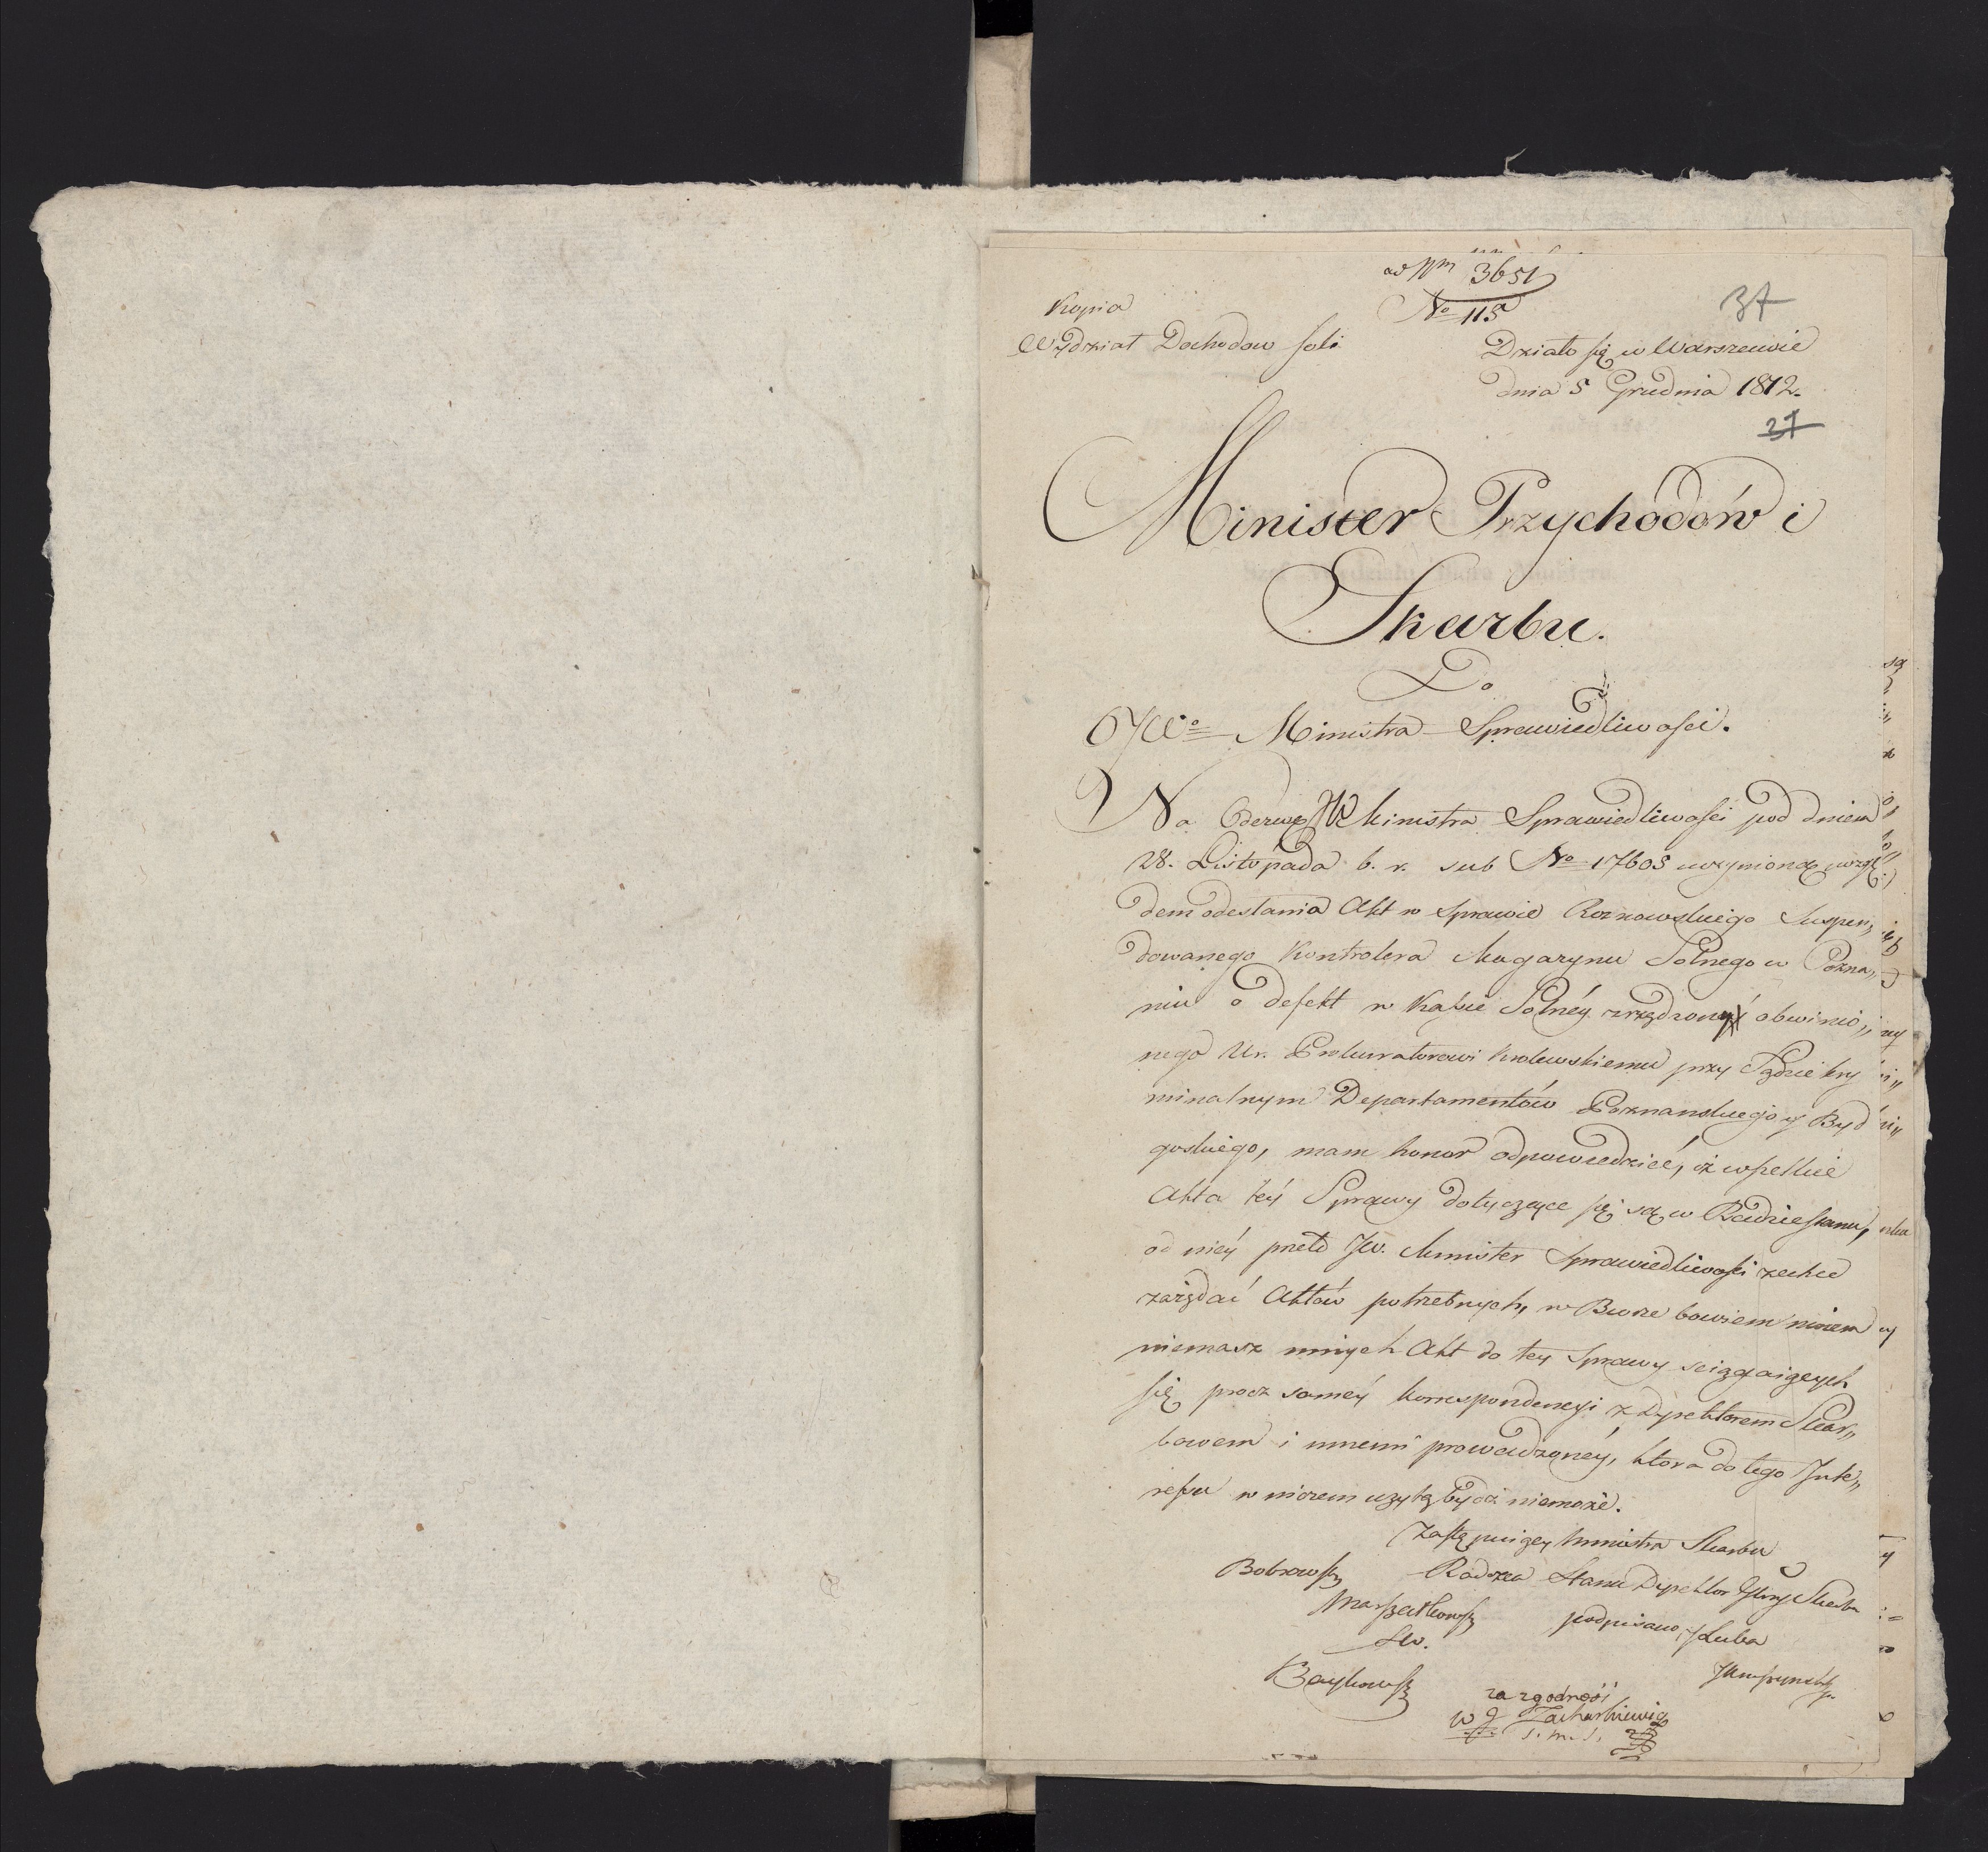 ad Nm 3651
No 115
37
Kopia
Wydział Dochodow Soli
Działo się w Warszawie
dnia 5 Grudnia 1812.
27
Minister Przychodów i
Skarbu.
Do
JWo Ministra Sprawiedliwości.
Na Odezwę JW Ministra Sprawiedliwości pod dniem
28. Listopada b. r. sub No 17605 uczynioną wzglę„
dem odesłania Akt w sprawie Roznowskiego Suspen„
dowanego Kontrolera Magazynu Solnego w Pozna„
niu o defekt w Kassie Solnéy zrządzony obwinio„
nego Ur. Prokuratorowi Krolewskiemu przy Sądzie kry
minalnym Departamentów Poznanskiego y Byd
goskiego, mam honor odpowiedzieć, iż wszelkie
Akta téy Sprawy dotyczące się są w Radzie Stanu,
od niéy przeto JW. Minister Sprawiedliwości zechce
zażądać Aktów potrzebnych, w Biorze bowiem moiem
niemasz innych Akt do tey Sprawy sciągaiących
się procz saméy korrespondencyi z Dyrektorem Skar„
bowem i innemi prowadzonéy, ktora do tego Inte„
ressu w niczem użytą bydź niemoże.
Zastępuiący Ministra Skarbu
Radzca Stanu Dyrektor Głny Skarbu
Bobrowski
Marszałkowski
podpisano, Łuba
Sw.
Baykowski
za zgodność
Zacharkiewicz
S. M. S.